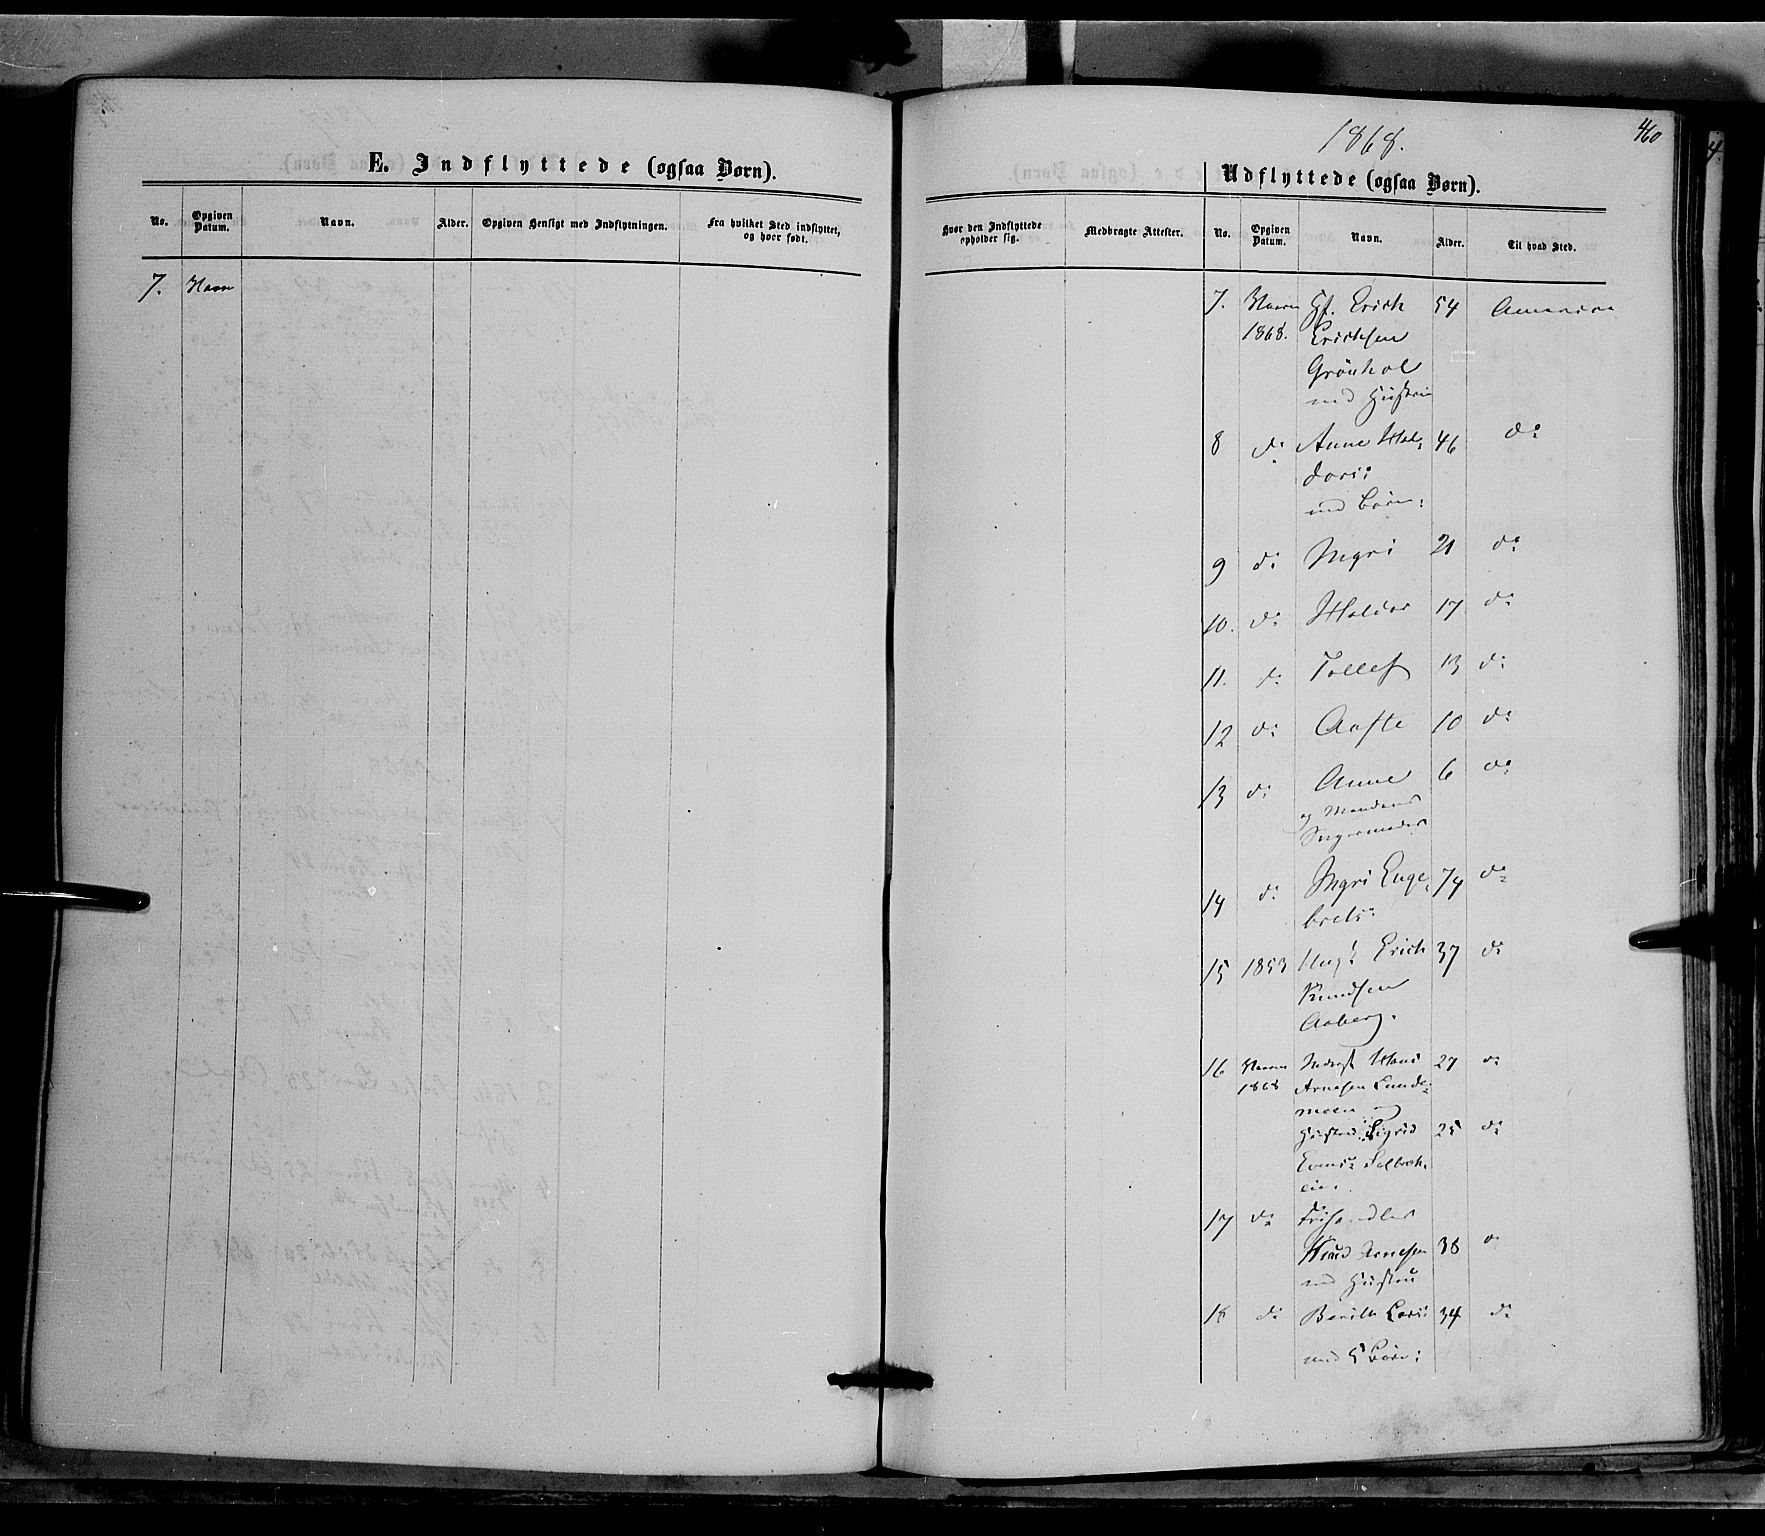 1868.
460
E. Indflyttede (ogsaa Børn).
Udflyttede (ogsaa Børn).
No.
Opgiven Datum.
Navn.
Alder.
Opgiven Hensigt med Indflytningen.
Fra hvilket Sted indflyttet, og hvor født.
Hvor den Indflyttede opholder sig.
Medbragte Attester.
No.
Opgiven Datum.
Navn.
Alder.
Til hvad Sted.
7.
7. Gf. Erich 54 America
1868. Erichsen
Grönhol
med Hustru
8 do Anne Hal- 46 do
dors:
med Børn:
9 do Ingri 21 do
10. do Haldor 17 do
11. do Tollef 13 do
12 do Aaste 10 do
13 do Anne 6 do
og Mandens
Svigermoder
14 do Ingri Enge- 74 do
brets:
15 1853 Ungk. Erich 37 do
Knudsen
Aaberg.
16 Inderst Hans 27 do
1868 Arnesen Lunde-
moen og
Hustru Sigrid 25 do
Evens:
17 do
Knud Arnesen 38 do
med Hustru
18 do Berith Lars: 34 do
med 5 Børn: